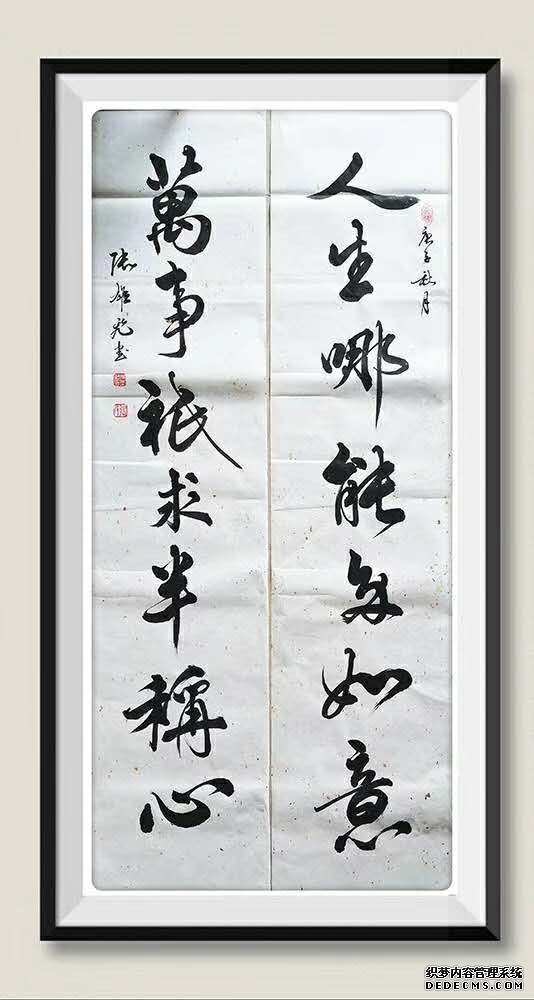 庚子秋月
人生哪能多如意
萬事祇求半稱心
雄书
织梦内容管理系统
DEDECMS.COM